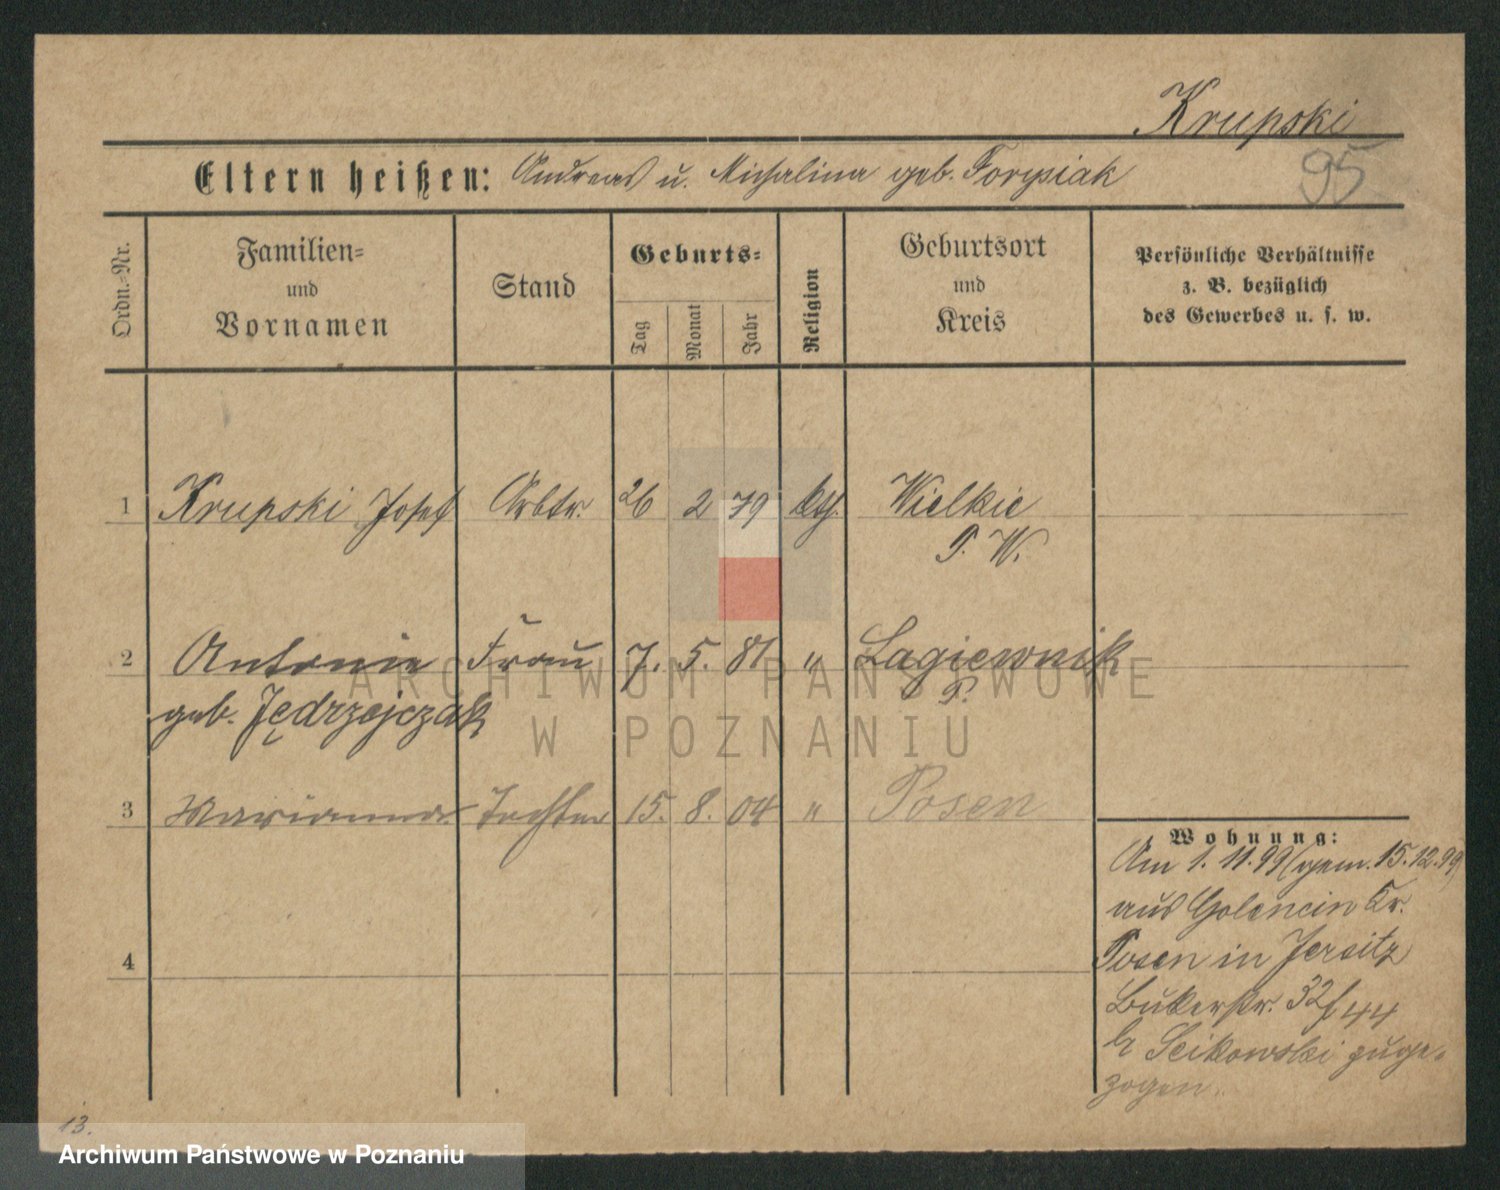 Krupski
95
Eltern heißen: Andreas u. Michalina geb. Forysiak
Ordn.-Nr.
Familien- und Vornamen
Stand
Geburts-
Tag
Monat
Jahr
Religion
Geburtsort und Kreis
Persönliche Verhältnisse
z. B. bezüglich
des Gewerbes u. s. w.
1 Krupski Josef Arbtr. 26 2 79 kth. Wielkie
P. W.
2 Antonie Frau 7. 5. 81 " Lagiewnik
geb. Jędrzejczak P.
3 Marianna Tochter 15. 8. 04 " Posen
Wohnung:
Am 1. 11. 99 (gem. 15. 12. 99)
aus Golencin Kr.
Posen in Jersitz
Bukerstr. 32/44
b Scikowski zuge-
zogen.
4
13.
ARCHIWUM PAŃSTWOWE
W POZNANIU
Archiwum Państwowe w Poznaniu